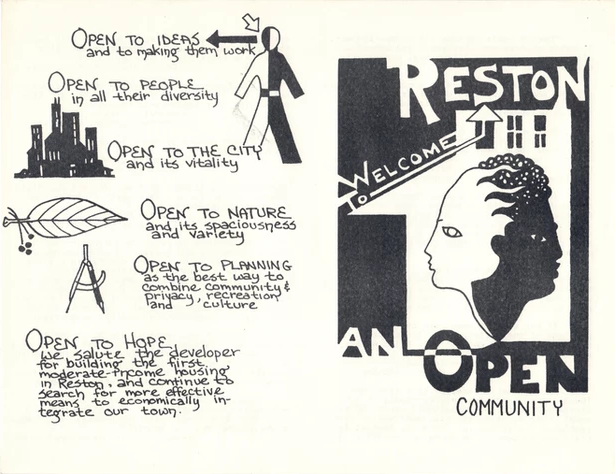 OPEN TO IDEAS
and to making them work
OPEN TO PEOPLE
in all their diversity
OPEN TO THE CITY
and its vitality
OPEN TO NATURE
and its spaciousness
and variety
OPEN TO PLANNING
as the best way to
combine community &
privacy, recreation
and culture
OPEN TO HOPE
we salute the developer
for building the first
moderate-income housing
in Reston, and continue to
search for more effective
means to economically in-
tegrate our town.
WELCOME
TO
RESTON
AN OPEN
COMMUNITY